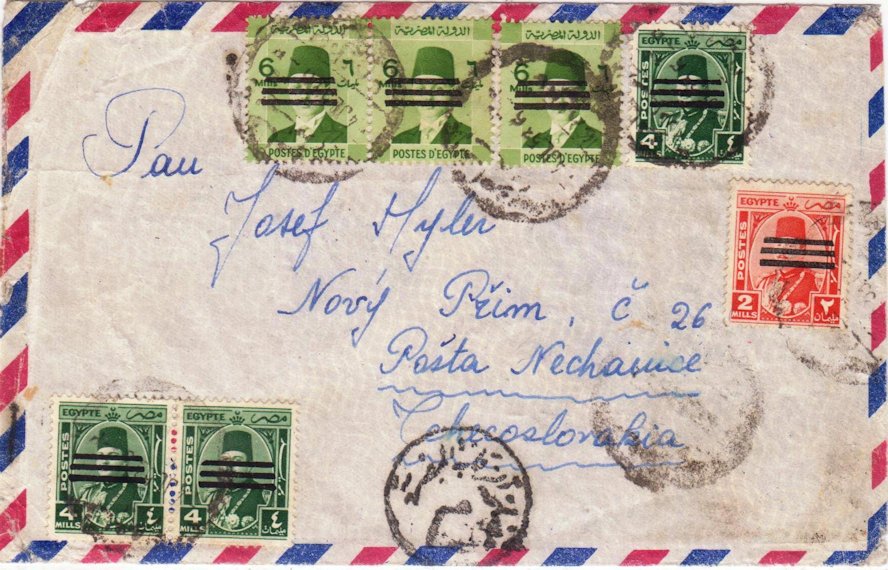 الدولة المصرية
6 ٦
Mills مليمات
POSTES D'EGYPTE
الدولة المصرية
6 ٦
Mills مليمات
POSTES D'EGYPTE
الدولة المصرية
6 ٦
Mills مليمات
POSTES D'EGYPTE
EGYPTE مصر
POSTES
4 ٤
Pan
Josef Hyler
Nový Přim, č 26
Pošta Nechanice
Tchecoslovakia
EGYPTE مصر
POSTES
2 ٢
MILLS مليمان
EGYPTE مصر
POSTES
4 ٤
MILLS مليمات
EGYPTE مصر
POSTES
4 ٤
MILLS مليمات